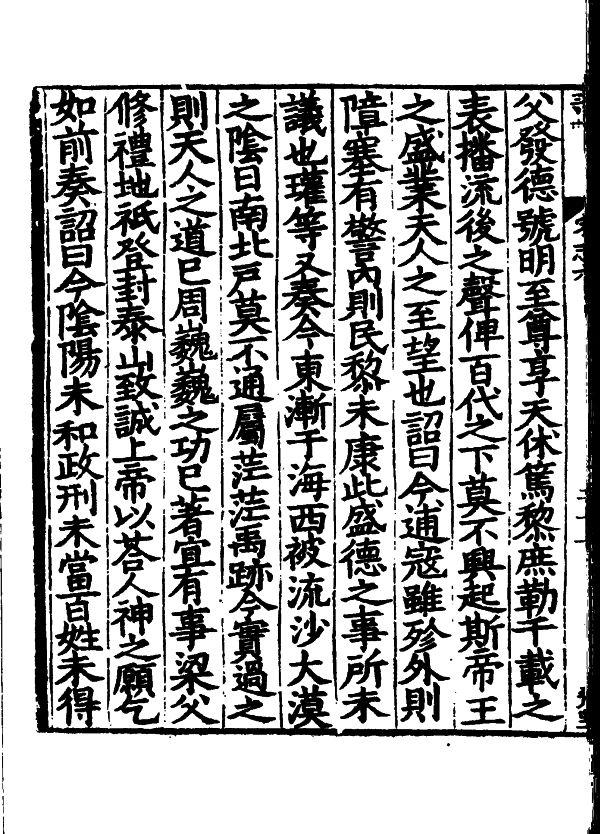 父發德號明至尊享天休篤黎庶勒千載之
表播流後之聲俾百代之下莫不興起斯帝王
之盛業天人之至望也詔曰今逋寇雖殄外則
障塞有警內則民黎未康此盛德之事所未
議也瓘等又奏今東漸于海西被流沙大漠
之陰日南北戶莫不通屬茫茫禹跡今實過之
則天人之道已周巍巍之功已著宜有事梁父
修禮地祇登封泰山致誠上帝以荅人神之願乞
如前奏詔曰今陰陽未和政刑未當百姓未得